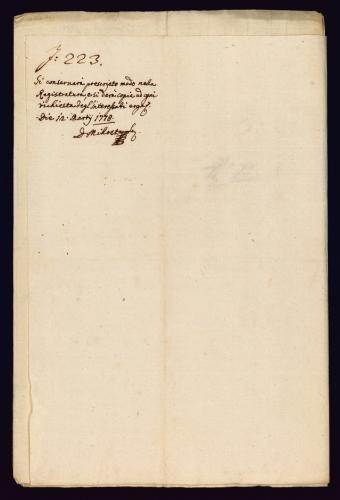 J: 223.
Si conservarà prescripto modo nella
Registratura, e si darà copia ad ogni
richiesta degl'interessati
Die 12. Martij 1778